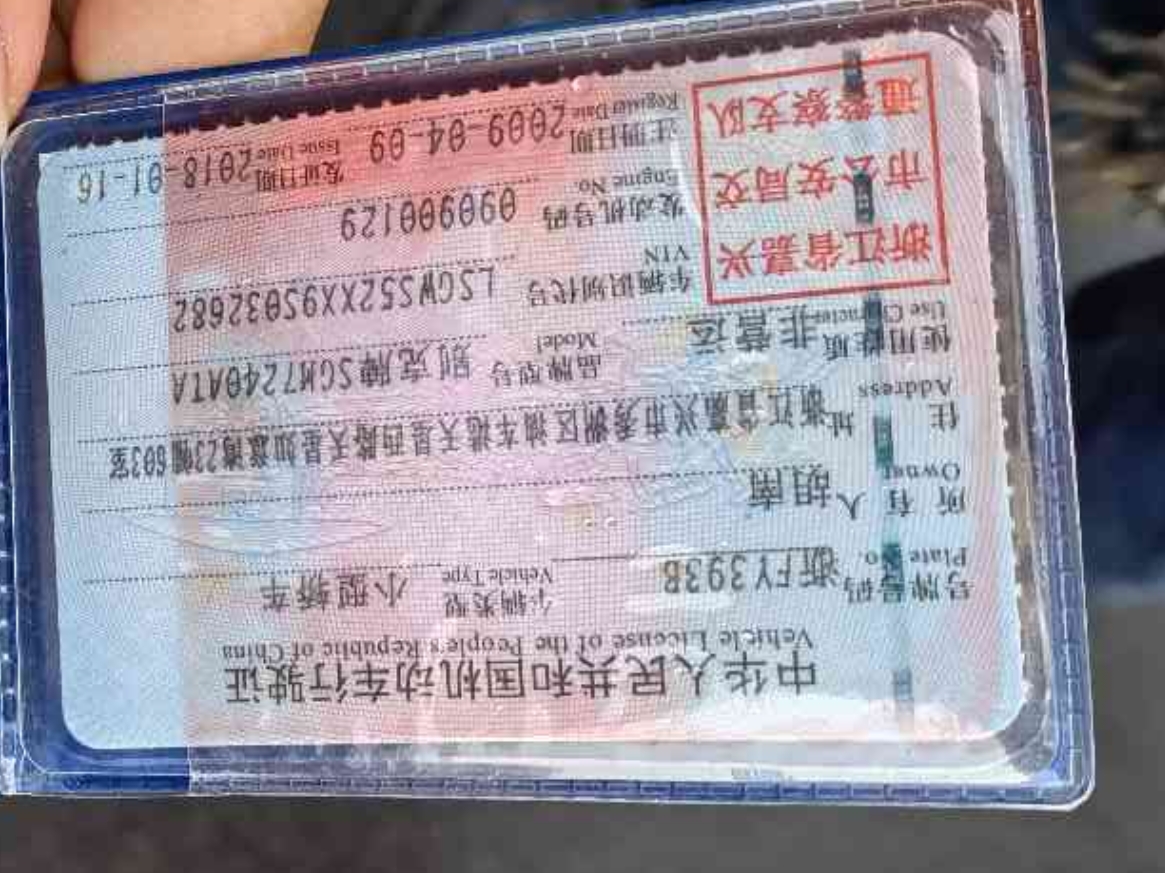 中华人民共和国机动车行驶证
Vehicle License of the People's Republic of China
号牌号码 浙FY393B 车辆类型 小型轿车
Plate No. Vehicle Type
所有人 胡南
Owner
住址 浙江省嘉兴市秀洲区油车港天星四路天星如意湾23幢603室
Address
使用性质 非营运 品牌型号 别克牌SGM7240ATA
Use Character Model
车辆识别代号 LSGWS52XX9S032682
VIN
发动机号码 090900129
Engine No.
注册日期 2009-04-09 发证日期 2018-01-16
Register Date Issue Date
浙江省嘉兴
市公安局交
通警察支队